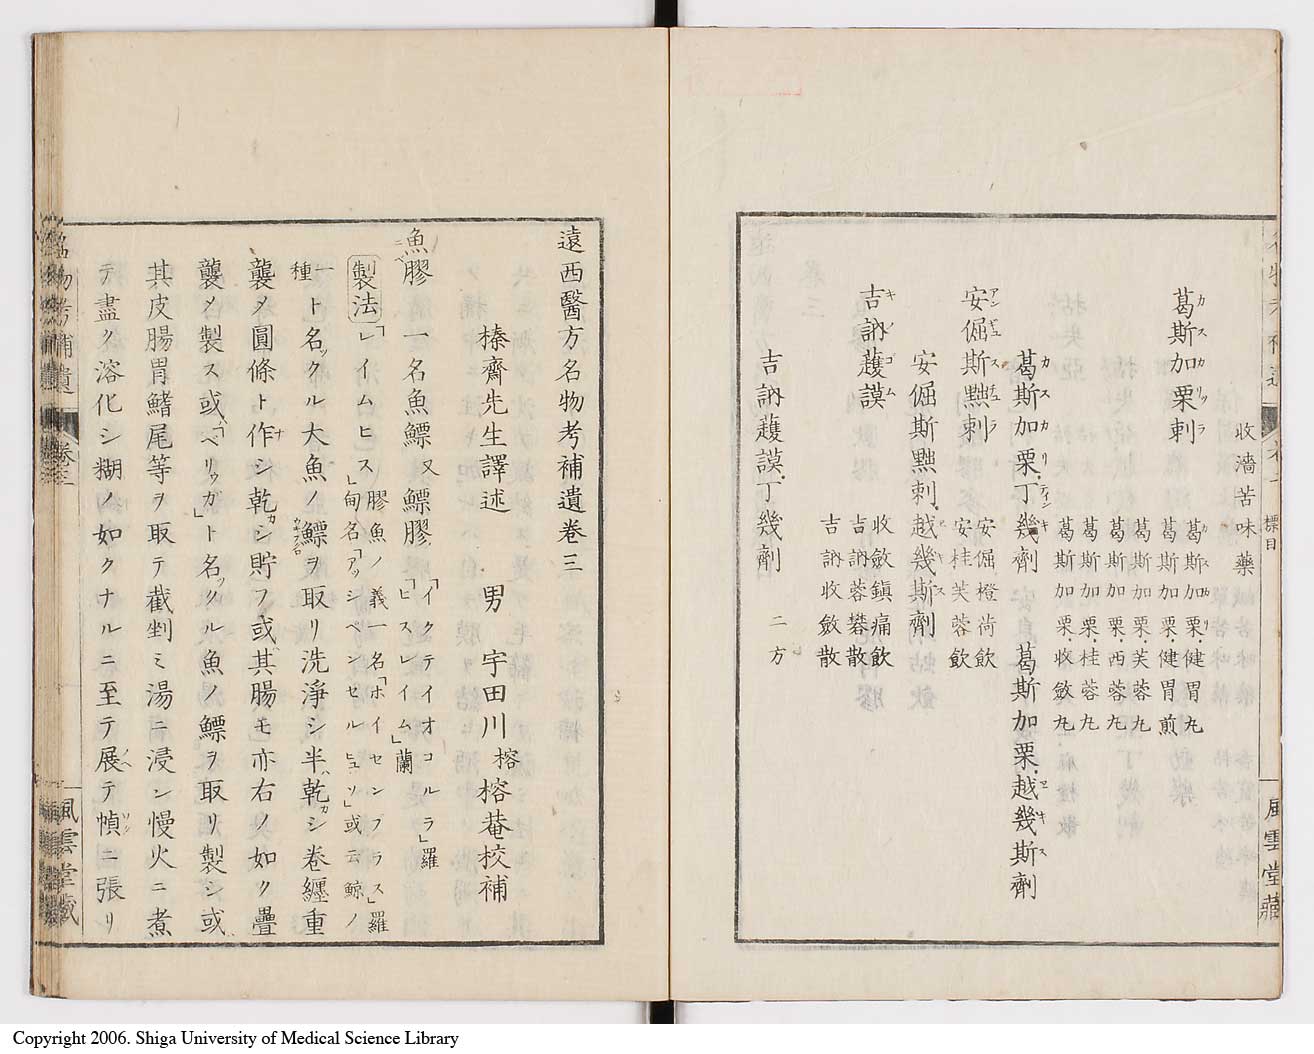 收濇苦味藥
葛斯加栗剌
葛斯加栗健胃丸
葛斯加栗健胃煎
葛斯加栗芙蓉丸
葛斯加栗西蓉丸
葛斯加栗桂蓉丸
葛斯加栗收斂丸
葛斯加栗丁幾劑 葛斯加栗越幾斯劑
安倔斯㸃剌
安倔橙荷飲
安桂芙蓉飲
安倔斯㸃剌越幾斯劑
吉訥護謨
收斂鎮痛飲
吉訥蓉礬散
吉訥收斂散
吉訥護謨丁幾劑 二方
標目
風雲堂藏
遠西醫方名物考補遺卷三
榛齋先生譯述 男 宇田川榕 榕菴校補
魚膠 一名魚鰾 又鰾膠 「イクテイオコルラ」羅「ヒスレイム」蘭
製法 「レイムヒス」膠魚ノ義一名「ホイセンブラス」羅甸名「アッシペンセルヒュソ」或云鯨ノ
一種ト名クル大魚ノ鰾ヲ取リ洗淨シ半乾シ卷纏重
襲メ圓條ト作シ乾シ貯フ或其腸モ亦右ノ如ク疊
襲メ製ス或「ベリッガ」ト名クル魚ノ鰾ヲ取リ製シ或
其皮腸胃鰭尾等ヲ取テ截剉ミ湯ニ浸シ慢火ニ煮
テ盡ク溶化シ糊ノ如クナルニ至テ展テ幀ニ張リ
名物考補遺 卷三
風雲堂藏